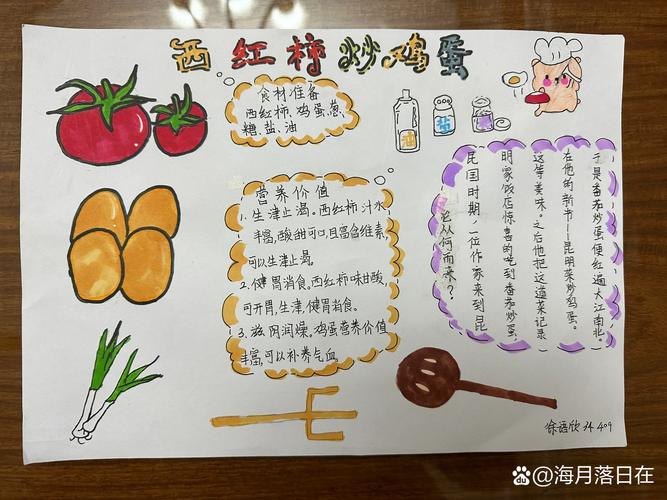 西红柿炒鸡蛋
食材准备
西红柿、鸡蛋、葱、
糖、盐、油
油
盐
营养价值
1.生津止渴。西红柿汁水
丰富,酸甜可口,且富含维素,
可以生津止渴。
2.健胃消食。西红柿味甘酸,
可开胃,生津,健胃消食。
3.滋阴润燥。鸡蛋营养价值
丰富,可以补养气血
它从何而来?
民国时期,一位作家来到昆
明家饭店惊喜的吃到番茄炒蛋,
这等美味。之后他把这道菜记录
在他的新书——昆明菜炒鸡蛋。
于是番茄炒蛋便红遍大江南北。
409
@海月落日在